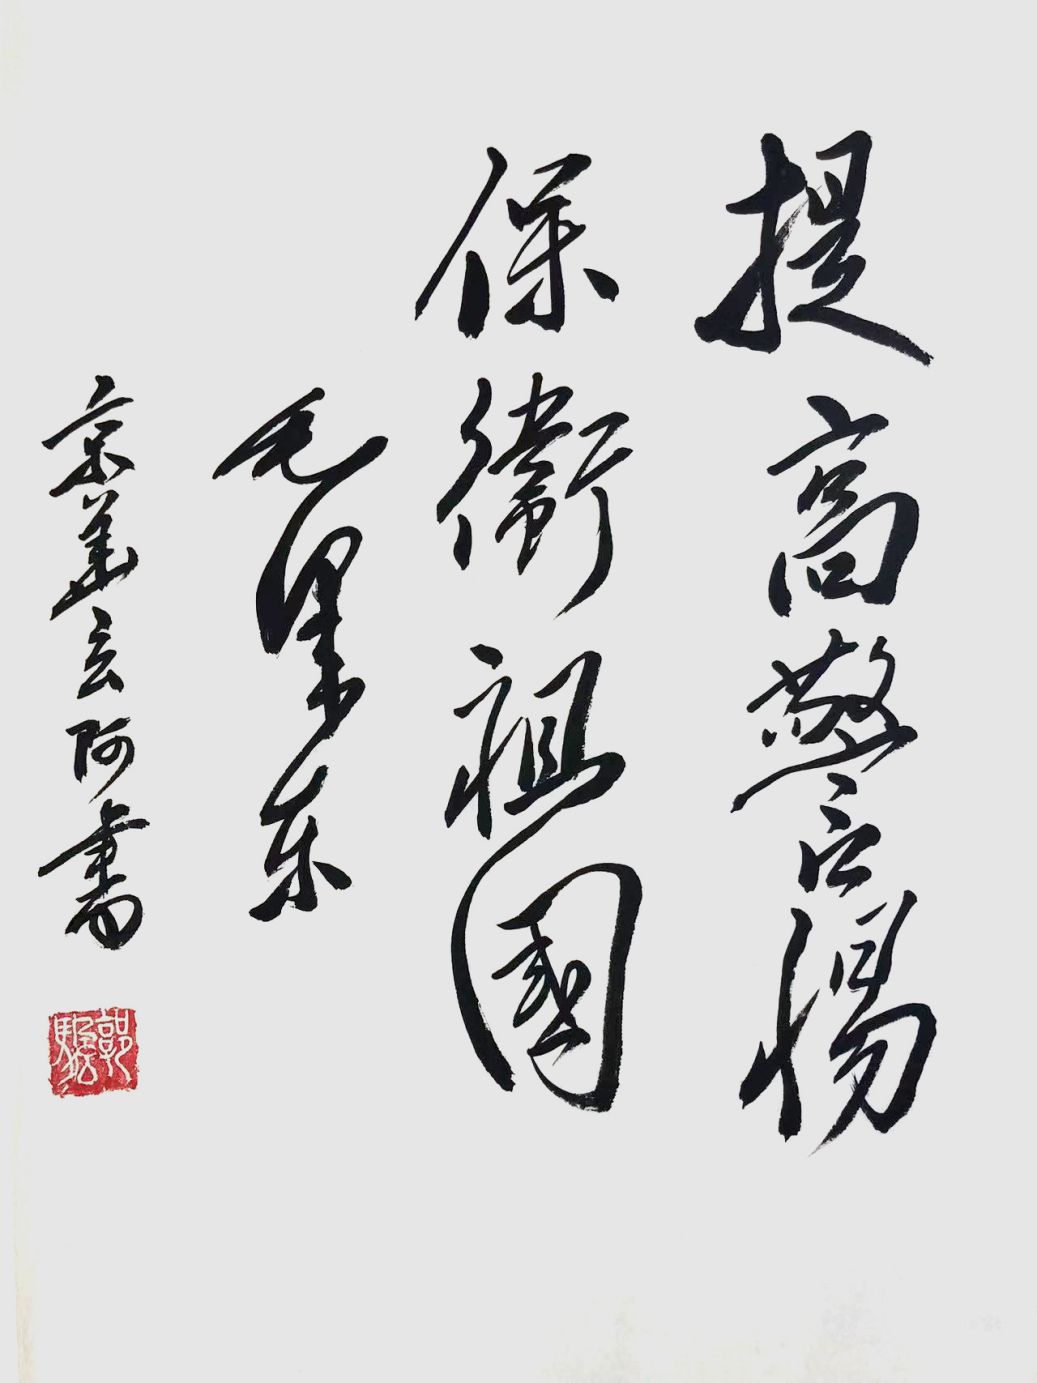 提高警惕
保衛祖國
毛泽东
京華玄阿書